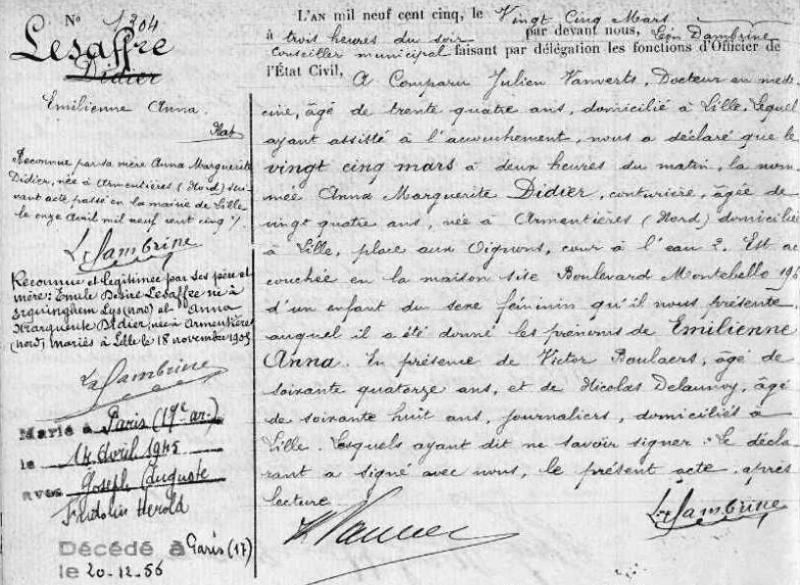 N° 1304
Lesaffre
Didier
Emilienne Anna.
Nat
Reconnue par sa mère Anna Marguerite
Didier, née à Armentières (Nord) sui-
vant acte passé en la mairie de Lille
le onze avril mil neuf cent cinq ./.
Ln Dambrine
Reconnue et légitimée par ses père et
mère: Emile Désiré Lesaffre né à
Erquinghem Lys (nord) et Anna
Marguerite Didier, née à Armentières
(nord) mariés à Lille le 18 novembre 1905
Ln Dambrine
Marié à Paris (17e ar.)
le 14 Avril 1945
avec Joseph Auguste
Fridolin Herold
Décédé à Paris (17)
le 20-12-56
L'AN mil neuf cent cinq, le Vingt Cinq Mars
à trois heures du soir par devant nous, Léon Dambrine
Conseiller municipal faisant par délégation les fonctions d'Officier de
l'État Civil, A Comparu Julien Vanverts, Docteur en méde
cine, âgé de trente quatre ans, domicilié à Lille. Lequel
ayant assisté à l'accouchement, nous a déclaré que le
vingt cinq mars à deux heures du matin, la nom-
mée Anna Marguerite Didier, couturière, âgée de
vingt quatre ans, née à Armentières (Nord) domiciliée
à Lille, place aux Oignons, cour à l'eau 2. Est ac
couchée en la maison site Boulevard Montebello 196
d'un enfant du sexe féminin qu'il nous présente
auquel il a été donné les prénoms de Emilienne
Anna. En présence de Victor Boulaers, âgé de
soixante quatorze ans, et de Nicolas Delaunoy, âgé
de soixante huit ans, journaliers, domiciliés à
Lille. Lesquels ayant dit ne savoir signer. Le décla
rant a signé avec nous, le présent acte, après
lecture
Ln Dambrine